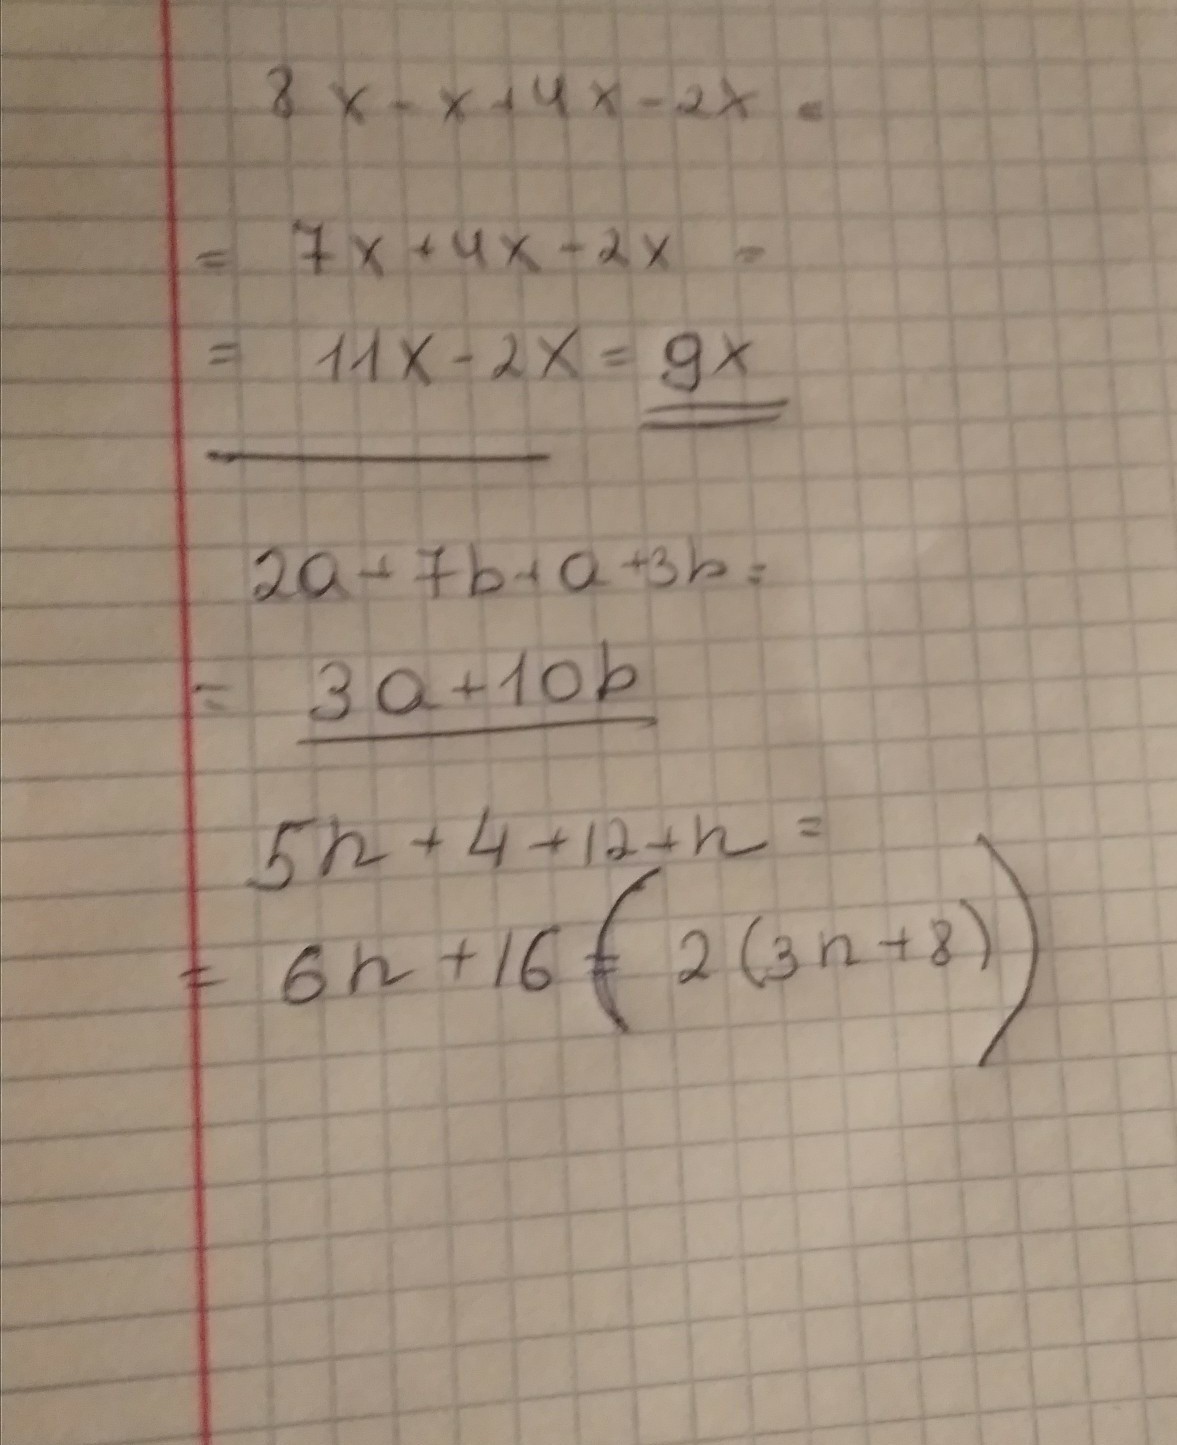 8x - x + 4x - 2x =
= 7x + 4x - 2x =
= 11x - 2x = 9x
2a + 7b + a + 3b =
= 3a + 10b
5n + 4 + 12 + n =
= 6n + 16 = ( 2 (3n + 8) )